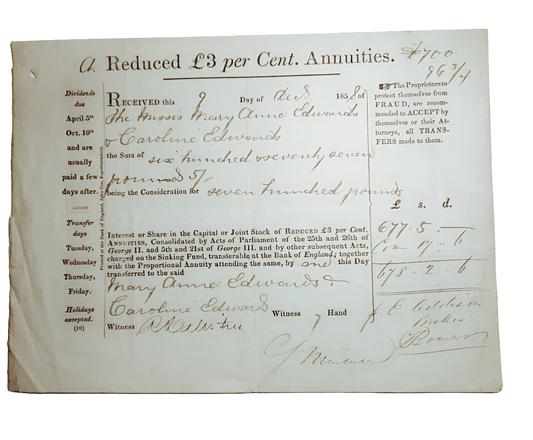 A. Reduced £3 per Cent. Annuities. £700
96 3/4
Dividends
due
April 5th
Oct. 10th
and are
usually
paid a few
days after.
Transfer
days
Tuesday,
Wednesday
Thursday,
Friday.
Holidays
excepted.
(10)
RECEIVED this 9 Day of Decr 1858 of
The Misses Mary Anne Edwards
& Caroline Edwards
the Sum of six hundred & seventy seven
pounds 5/-
being the Consideration for seven hundred pounds
Interest or Share in the Capital or Joint Stock of REDUCED £3 per Cent.
ANNUITIES, Consolidated by Acts of Parliament of the 25th and 26th of
George II. and 5th and 21st of George III. and by other subsequent Acts,
charged on the Sinking Fund, transferable at the Bank of England; together
with the Proportional Annuity attending the same, by me this Day
transferred to the said
Mary Anne Edwards &
Caroline Edwards
Witness Hand
Witness
The Proprietors to
protect themselves from
FRAUD, are recom-
mended to ACCEPT by
themselves or their At-
torneys, all TRANS-
FERS made to them.
£ s. d.
677 . 5 . —
Com 17 . 6
678 - 2 - 6
Broker